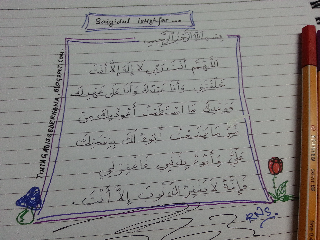 Saiyidul Istighfar...
بسم الله الرحمن الرحيم
اللهم أنت ربي لا إله إلا أنت
خلقتني وأنا عبدك وأنا على عهدك
ووعدك ما استطعت أعوذ بك من
شر ما صنعت أبوء لك بنعمتك
علي وأبوء بذنبي فاغفر لي
فإنه لا يغفر الذنوب إلا أنت.